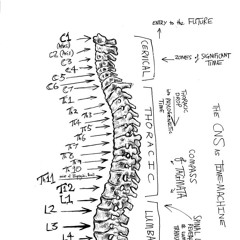 C1
(Atlas)
C2 (Axis)
C3
C4
C5
C6
C7
T1
T2
T3
T4
T5
T6
T7
T8
T9
T10
T11
T12
L1
L2
L3
L4
CERVICAL
THORACIC
LUMBA
ENTRY to the FUTURE
ZONES of SIGNIFICANT
TIME
THORACIC
DROP
COMPASS
of
SPINAL
THE CNS is TIME-MACHINE